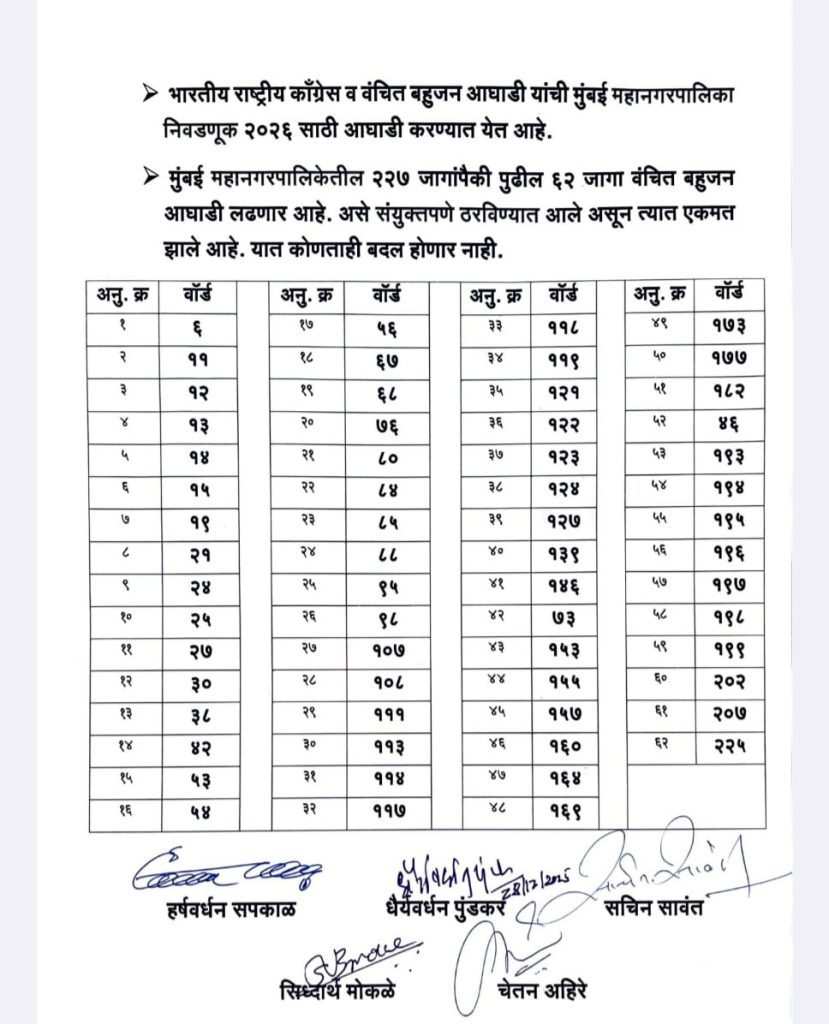 ➢ भारतीय राष्ट्रीय काँग्रेस व वंचित बहुजन आघाडी यांची मुंबई महानगरपालिका
निवडणूक २०२६ साठी आघाडी करण्यात येत आहे.
➢ मुंबई महानगरपालिकेतील २२७ जागांपैकी पुढील ६२ जागा वंचित बहुजन
आघाडी लढणार आहे. असे संयुक्तपणे ठरविण्यात आले असून त्यात एकमत
झाले आहे. यात कोणताही बदल होणार नाही.
अनु. क्र वॉर्ड अनु. क्र वॉर्ड अनु. क्र वॉर्ड अनु. क्र वॉर्ड
१ ६ १७ ५६ ३३ ११८ ४९ १७३
२ ११ १८ ६७ ३४ ११९ ५० १७७
३ १२ १९ ६८ ३५ १२१ ५१ १८२
४ १३ २० ७६ ३६ १२२ ५२ ४६
५ १४ २१ ८० ३७ १२३ ५३ १९३
६ १५ २२ ८४ ३८ १२४ ५४ १९४
७ १९ २३ ८५ ३९ १२७ ५५ १९५
८ २१ २४ ८८ ४० १३९ ५६ १९६
९ २४ २५ ९५ ४१ १४६ ५७ १९७
१० २५ २६ ९८ ४२ ७३ ५८ १९८
११ २७ २७ १०७ ४३ १५३ ५९ १९९
१२ ३० २८ १०८ ४४ १५५ ६० २०२
१३ ३८ २९ १११ ४५ १५७ ६१ २०७
१४ ४२ ३० ११३ ४६ १६० ६२ २२५
१५ ५३ ३१ ११४ ४७ १६४
१६ ५४ ३२ ११७ ४८ १६९
28/12/2025
हर्षवर्धन सपकाळ धैर्यवर्धन पुंडकर सचिन सावंत
सिध्दार्थ मोकळे चेतन अहिरे